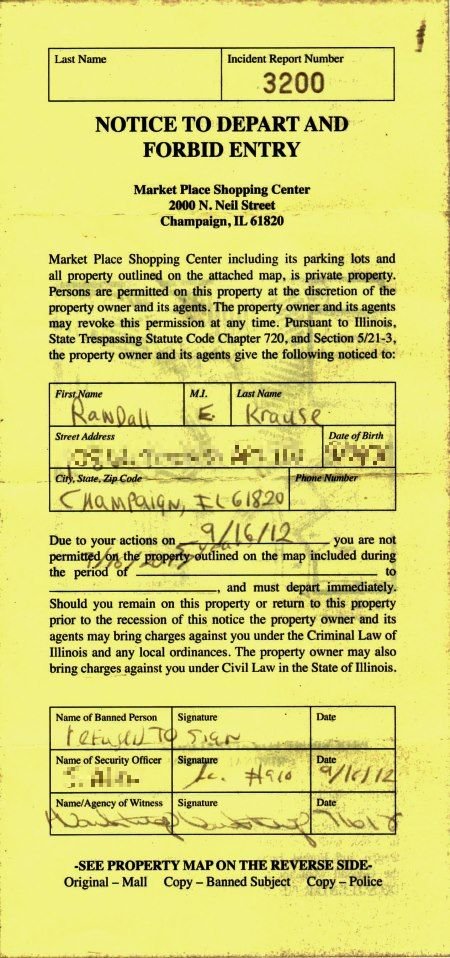 Last Name Incident Report Number
3200
NOTICE TO DEPART AND
FORBID ENTRY
Market Place Shopping Center
2000 N. Neil Street
Champaign, IL 61820
Market Place Shopping Center including its parking lots and
all property outlined on the attached map, is private property.
Persons are permitted on this property at the discretion of the
property owner and its agents. The property owner and its agents
may revoke this permission at any time. Pursuant to Illinois,
State Trespassing Statute Code Chapter 720, and Section 5/21-3,
the property owner and its agents give the following noticed to:
First Name M.I. Last Name
Randall E. Krause
Street Address Date of Birth
City, State, Zip Code Phone Number
CHAMPAIGN, IL 61820
Due to your actions on 9/16/12 you are not
permitted on the property outlined on the map included during
the period of to
, and must depart immediately.
Should you remain on this property or return to this property
prior to the recession of this notice the property owner and its
agents may bring charges against you under the Criminal Law of
Illinois and any local ordinances. The property owner may also
bring charges against you under Civil Law in the State of Illinois.
Name of Banned Person Signature Date
refused TO Sign
Name of Security Officer Signature Date
#910 9/16/12
Name/Agency of Witness Signature Date
-SEE PROPERTY MAP ON THE REVERSE SIDE-
Original – Mall Copy – Banned Subject Copy – Police